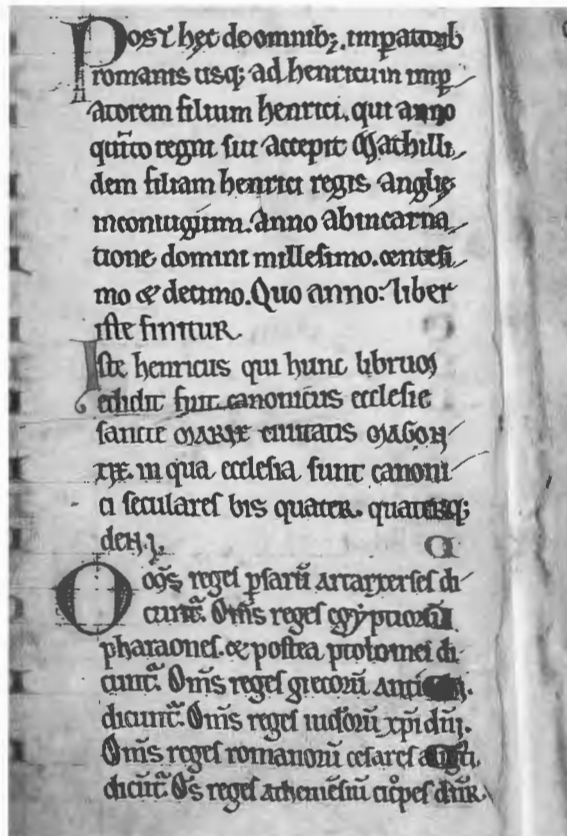 Post hec de omnib; imperatorib
romanis usq; ad henricum imp
atorem filium henrici. qui anno
quīto regni sui accepit Mathilli
dem filiam henrici regis anglię
in coniugium. anno ab incarna
tione domini millesimo. centesi
mo & decimo. Quo anno: liber
iste finitur
Iste henricus qui hunc librum
edidit fuit canonicus ecclesie
sancte MARIE ciuitatis MAGON
TIE. in qua ecclesia sunt canoni
ci seculares bis quater. quaterq;
deni.
Omēs reges psarū artarxerses di
cunt̄. Om̄s reges egyptiorū
pharaones. & postea ptolomei di
cunt̄. Om̄s reges grecorū
dicunt̄. Om̄s reges iudeorū xp̄i dn̄i.
Om̄s reges romanorū cesares
dicūt̄. Om̄s reges atheniēsiū cicropes